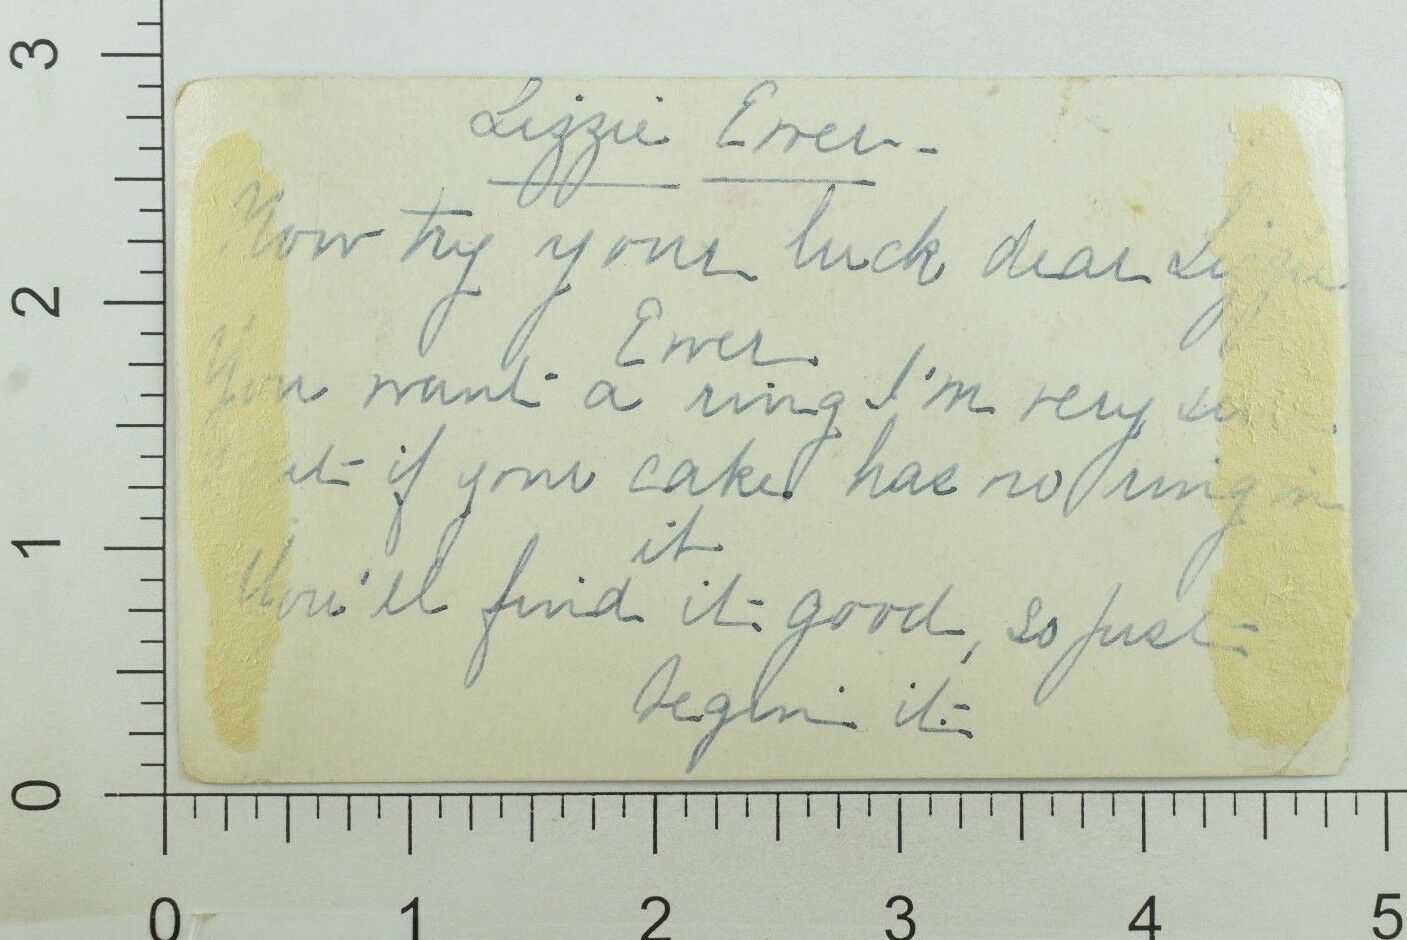 Lizzie Ewer-
Now try your luck dear Lizzie
Ewer.
You want a ring I'm very
if your cake has no ring in
it
You'll find it good, so just
begin it
3
2
1
0
0 1 2 3 4 5